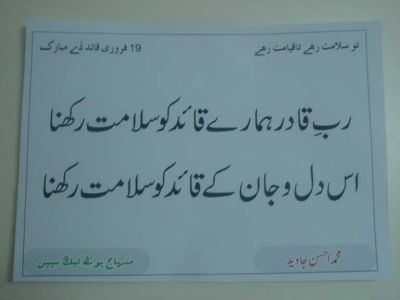 تو سلامت رہے تا قیامت رہے
19 فروری قائد ڈے مبارک
ربِ قادر ہمارے قائد کو سلامت رکھنا
اس دل و جان کے قائد کو سلامت رکھنا
محمد احسن جاوید
منہاج یوتھ لیگ سپین